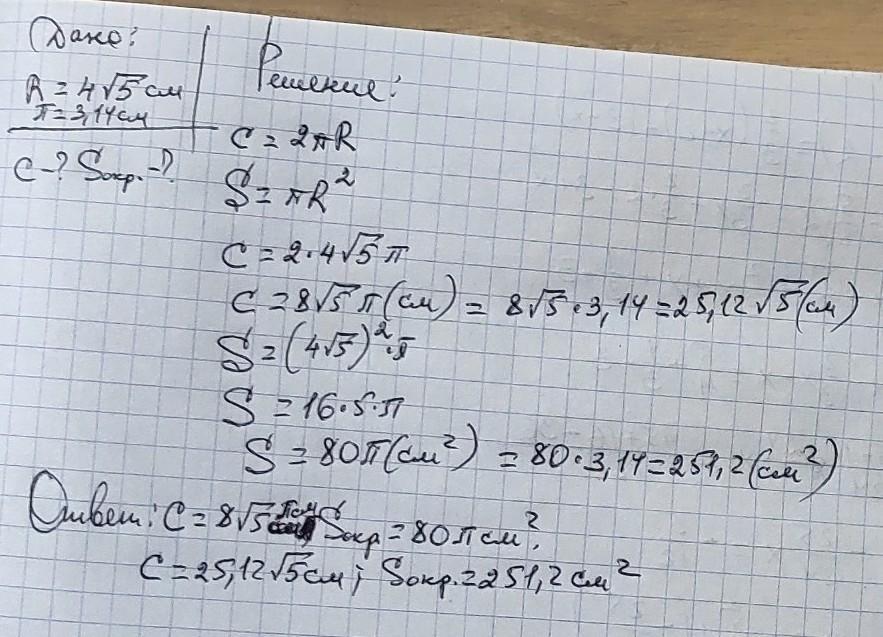 Дано:
R = 4√5 см
π = 3,14 см
C - ? Sокр. - ?
Решение:
C = 2πR
S = πR²
C = 2·4√5 π
C = 8√5 π (см) = 8√5 · 3,14 = 25,12 √5 (см)
S = (4√5)² · π
S = 16·5·π
S = 80π (см²) = 80·3,14 = 251,2 (см²)
Ответ: C = 8√5 π см Sокр = 80 π см².
C = 25,12√5 см; Sокр. = 251,2 см²